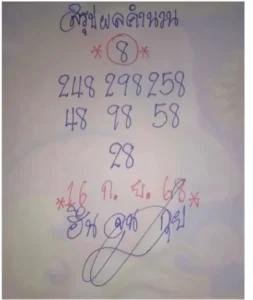 สรุปผลคำนวน
* 8 *
248 298 258
48 98 58
28
*16 ก. ย. 68*